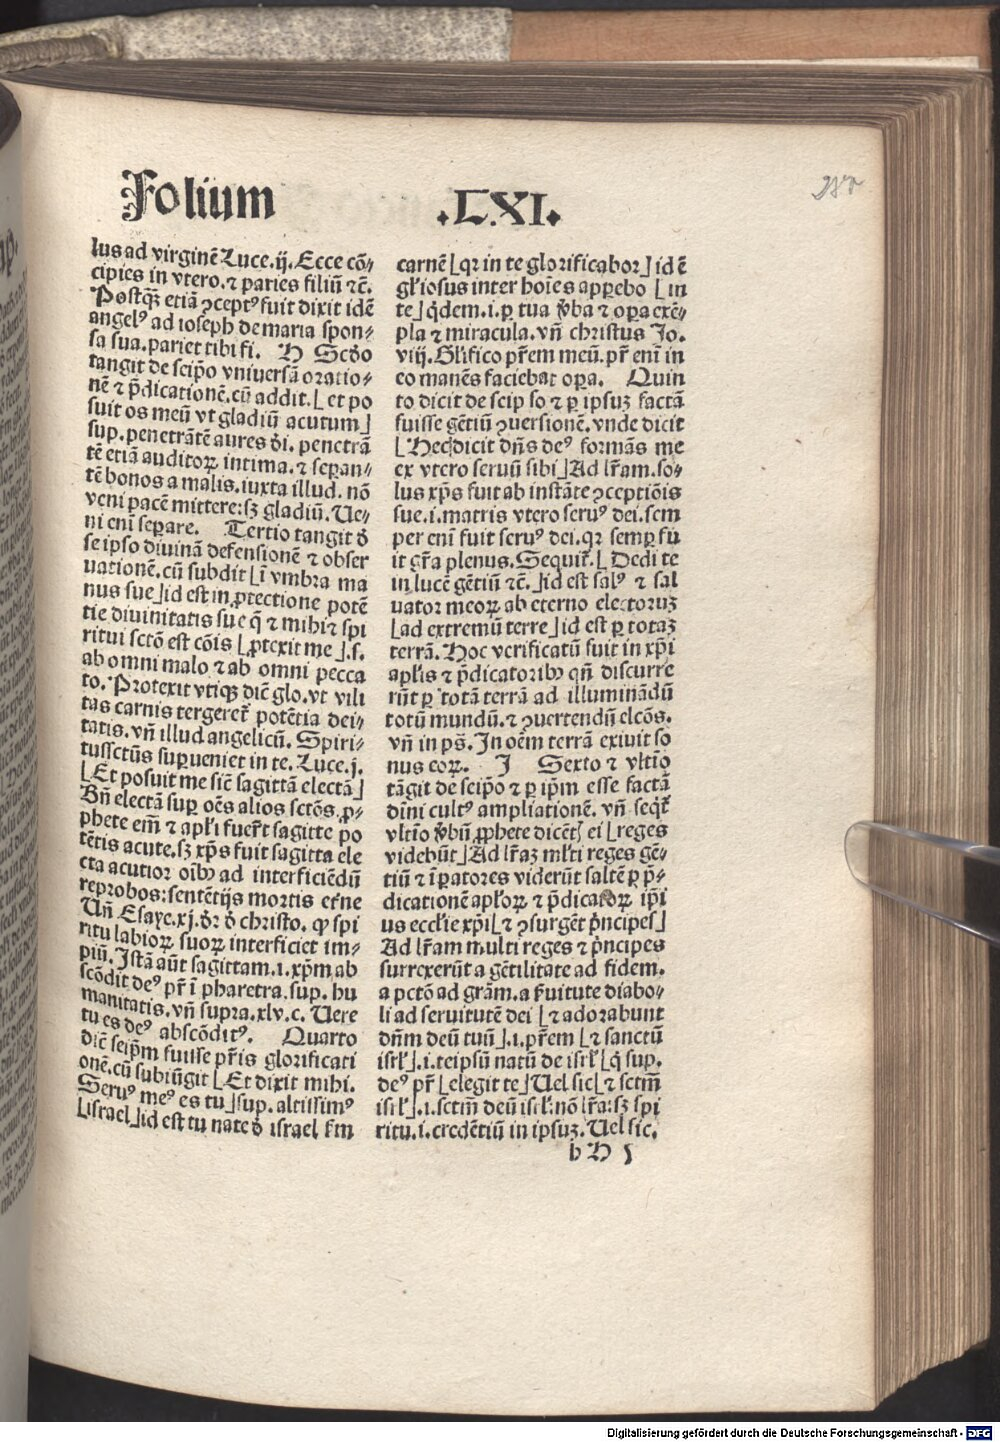 Folium .LXI.
280
lus ad virginē Luce.ij. Ecce cō⸗
cipies in vtero.⁊ paries filiū ⁊c̄.
Postqȝ etiā ꝯceptꝰ fuit dixit idē
angelꝰ ad ioseph de maria spon⸗
sa sua.pariet tibi fi. H Scďo
tangit de seipo vniuersā oratio⸗
nē ⁊ p̄dicationē.cū addit.[et po
suit os meū vt gladiū acutum]
sup.penetrātē aures ďi. penetrā
tē etiā auditoꝝ intima.⁊ sepan⸗
tē bonos a malis.iuxta illud. nō
veni pacē mittere:sȝ gladiū. Ue⸗
ni eni separe. Tertio tangit ď
se ipso diuinā defensionē ⁊ obser
uationē.cū subdit [ī vmbra ma
nus sue]id est in ꝓtectione potē
tie diuinitatis sue q̄ ē mihi ⁊ spi
ritui sctō est cōis [ꝓtexit me].s.
ab omni malo ⁊ ab omni pecca
to. Protexit vtiqȝ dic̄ glo.vt vili
tas carnis tergeret̄ potētia dei⸗
tatis. vn̄ illud angelicū. Spiri⸗
tussctūs supueniet in te. Luce.j.
[Et posuit me sic̄ sagittā electā]
Bn̄ electā sup oēs alios sctōs.ꝓ⸗
phete em̄ ⁊ apłi fuer̄t sagitte po
tētis acute.sȝ xp̄s fuit sagitta ele
cta acutior oībꝰ ad interficiēdū
reprobos:sentētijs mortis et̄ne
Un̄ Esaye.xj.ďr ď christo. ꝙ spi
ritu labioꝝ suoꝝ interficiet im⸗
piū. Istā aūt sagittam.i.xp̄m ab
scōdit deꝰ pr̄ ī pharetra.sup. hu
manitatis.vn̄ supra.xlv.c. Uere
tu es deꝰ abscōditꝰ. Quarto
dic̄ seip̄m fuisse pr̄is glorificati
onē.cū subiūgit [Et dixit mihi.
Seruꝰ meꝰ es tu]sup. altissimꝰ
[israel]id est tu nate ď israel ẜm
carnē [qꝛ in te glorificabor] id ē
gl̄iosus inter hoīes apꝑebo [in
te] q̇dem.i.ꝑ tua v̇ba ⁊ oꝑa exē⸗
pla ⁊ miracula. vn̄ christus Jo.
viij. Gl̄ifico pr̄em meū. pr̄ enī in
eo manēs faciebat oꝑa. Quin
to dicit de seip so ⁊ ꝑ ipsuȝ factā
fuisse gētiū ꝯuersionē. vnde dicit
[Hec dicit dn̄s deꝰ formās me
ex vtero seruū sibi] Ad lr̄am.so⸗
lus xp̄s fuit ab instāte ꝯceptiōis
sue.i.matris vtero seruꝰ dei.sem
per enī fuit seruꝰ dei.qꝛ semꝑ fu
it gr̄a plenus. Sequit̄. [Dedi te
in lucē gētiū ⁊c̄.]id est salꝰ ⁊ sal
uator meoꝝ ab eterno electoruȝ
[ad extremū terre]id est ꝑ totaȝ
terrā. Hoc verificatū fuit in xp̄i
apl̄is ⁊ p̄dicatoribꝰ qn̄ discurre
rūt ꝑ totā terrā ad illuminādū
totū mundū.⁊ ꝯuertendū elcōs.
vn̄ in ps̄. In oēm terrā exiuit so
nus eoꝝ. I Sexto ⁊ vltīo
tāgit de seipō ⁊ ꝑ ip̄m esse factā
dīni cultꝰ ampliationē. vn̄ seqt̄
vltīo v̇bū ꝓphete dicēt ei [reges
videbūt]Ad lr̄aȝ ml̄ti reges gē⸗
tiū ⁊ īꝑatores viderūt saltē ꝑ p̄⸗
dicationē apl̄oꝝ ⁊ p̄dicatoꝝ ip̄i
us eccl̄ie xp̄i[⁊ ꝯsurgēt p̄ncipes]
Ad lr̄am multi reges ⁊ p̄ncipes
surrexerūt a gētilitate ad fidem.
a pctō ad grām.a ẜuitute diabo⸗
li ad seruitutē dei [⁊ adorabunt
dn̄m deū tuū].i.pr̄em [⁊ sanctū
isr̄l].i.teipsū natū de isr̄l [q̇ sup.
deꝰ pr̄ [elegit te]Uel sic[⁊ sctm̄
isr̄l].i.sctm̄ deū isr̄l:nō lr̄a:sȝ spi
ritu.i.credētiū in ipsuȝ. Uel sic.
b H 5
Digitalisierung gefördert durch die Deutsche Forschungsgemeinschaft - DFG